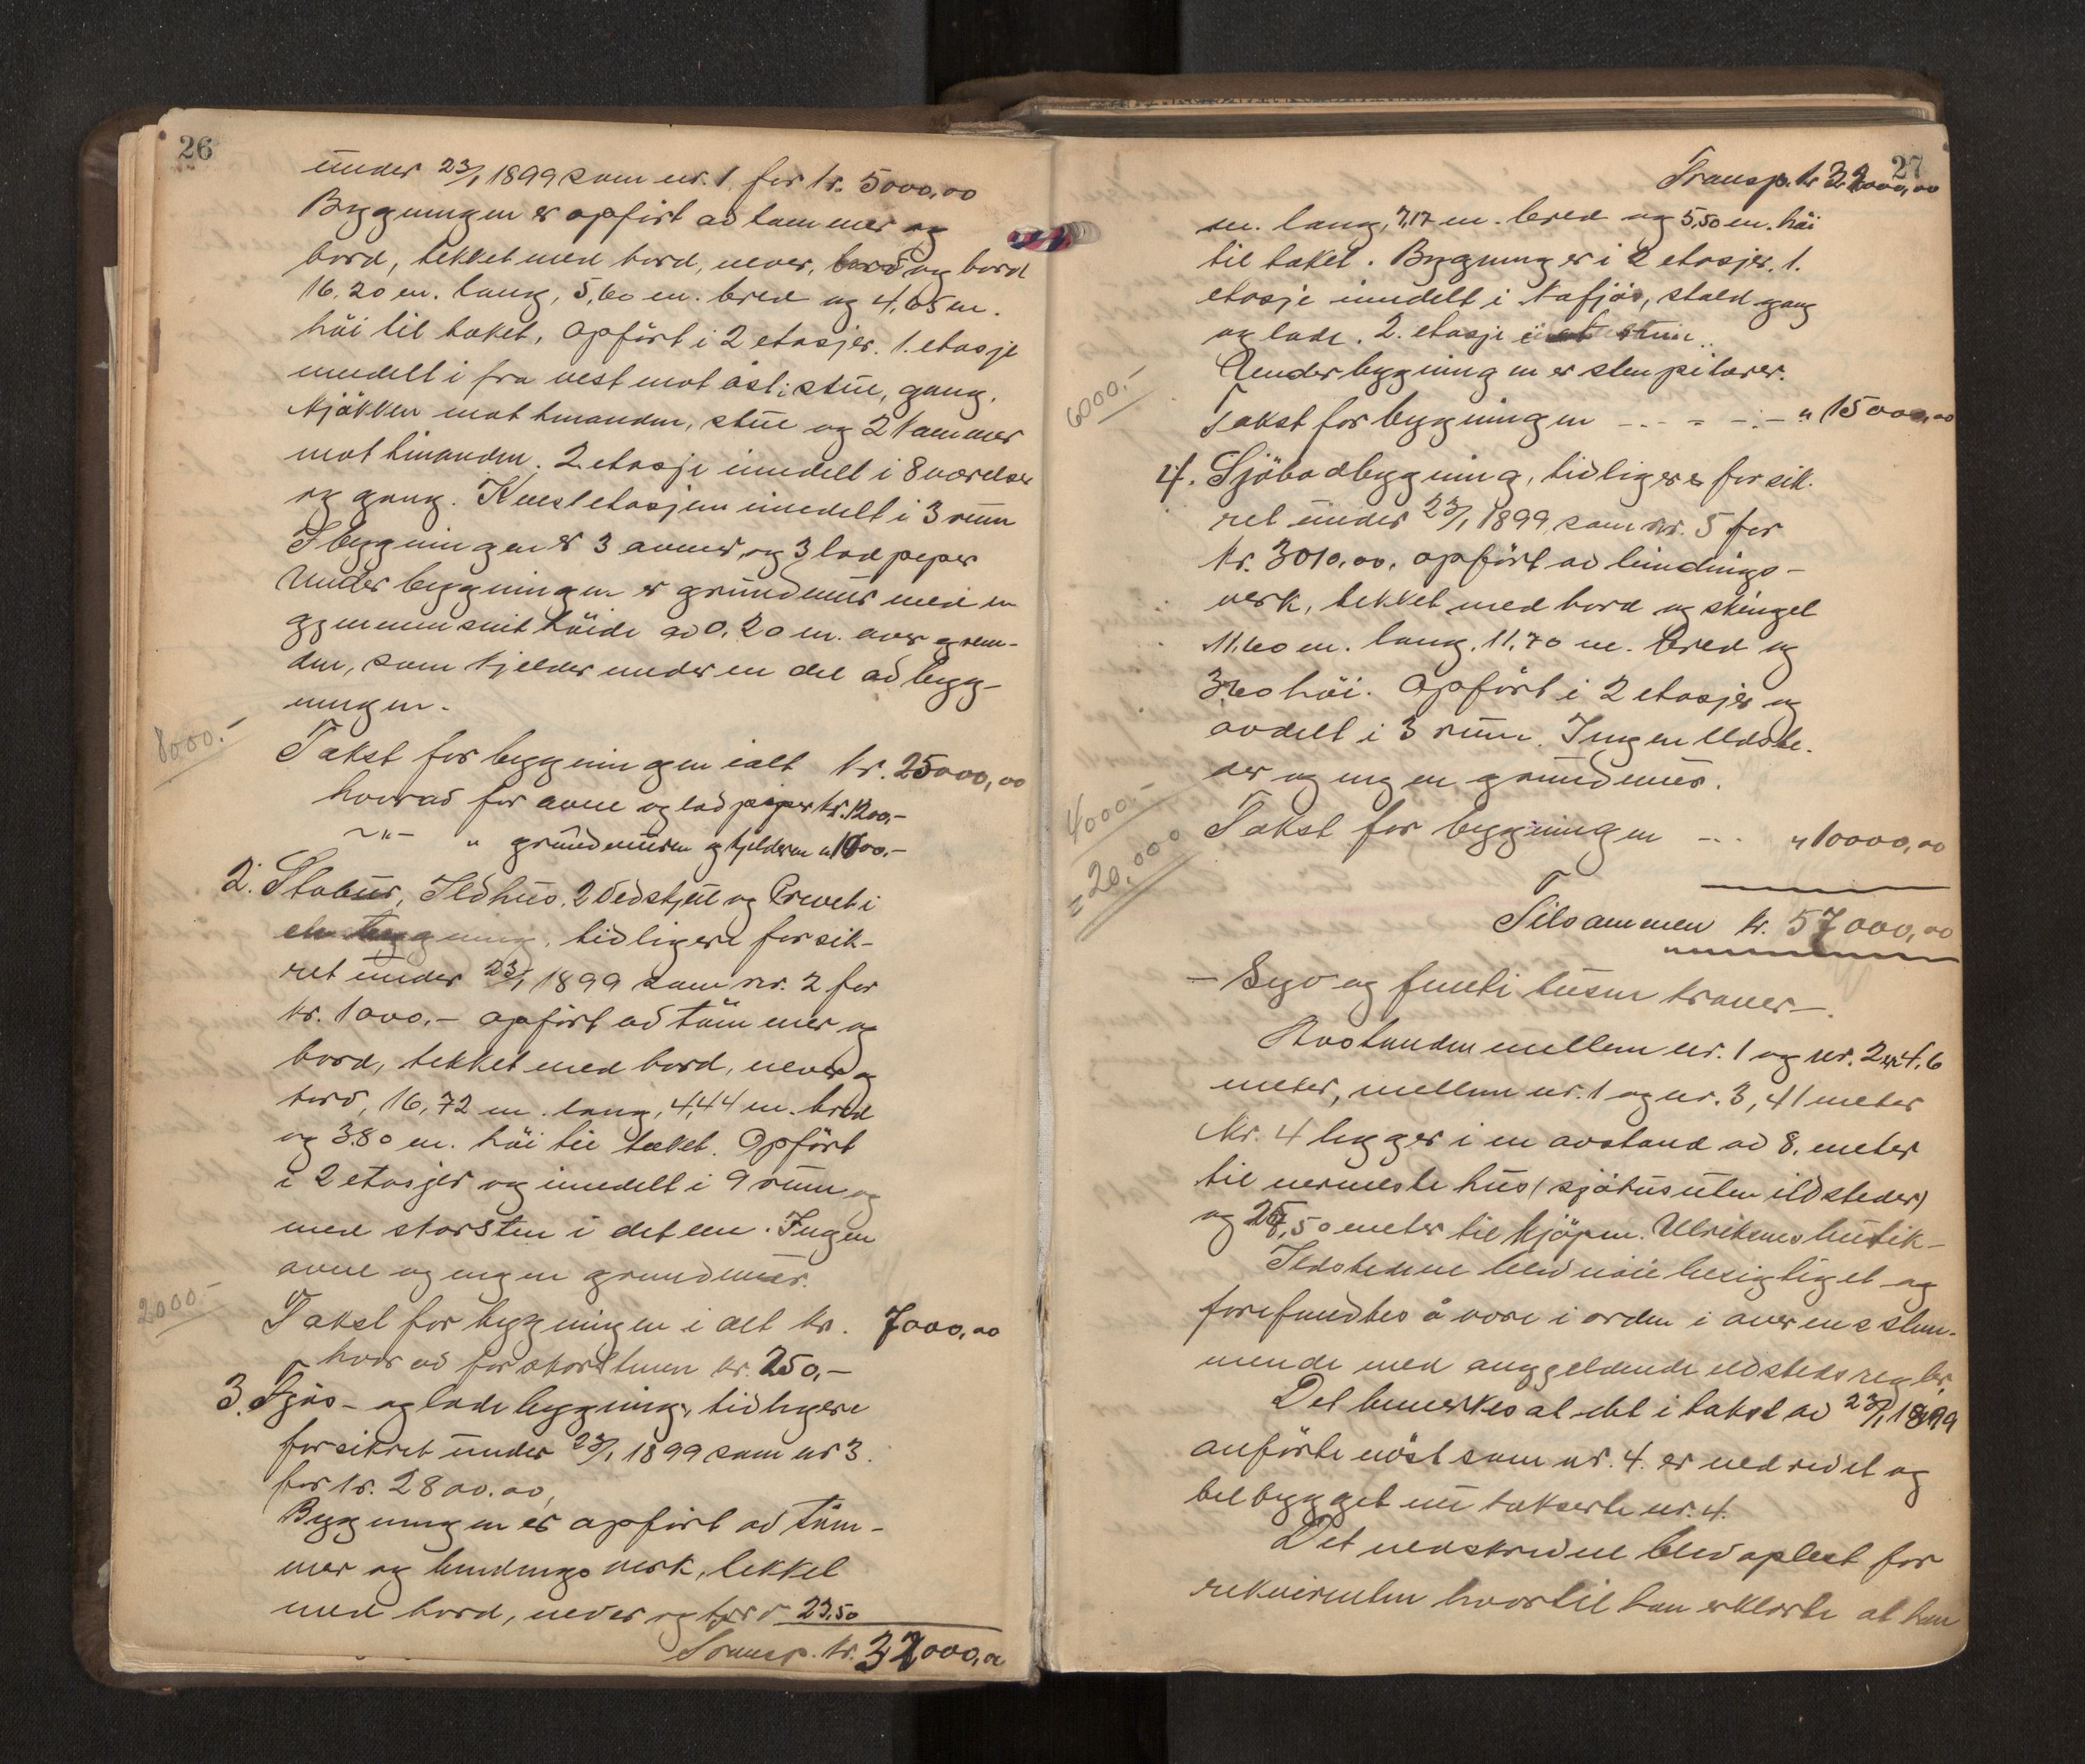 26
under 23/1 1899 som nr. 1 for kr. 5000,00
Bygningen er opført av tømmer og
bord, tekket med bord, never, torv og bord
16.20 m. lang, 5,60 m. bred og 4,65 m.
høi til taket, opført i 2 etasjer. 1. etasje
inndelt i fra vest mot øst: stue, gang,
kjøkken mot hinanden, stue og 2 kammer
mot hinanden. 2. etasje inndelt i 8 værelser
og gang. Kvistetasjen inndelt i 3 rum
I bygningen er 3 ovner, og 3 lodpiper
Under bygningen er grundmur med en
gjennemsnit høide av 0,20 m. over grun-
den, som kjelder under en del av byg-
ningen.
8000.-
Takst for bygningen ialt kr. 25000,00
hvorav for ovne og lodpiper kr. 1200,-
-"- " grundmuren og kjelderen " 1000,-
2. Stabur, Ildhus, 2 Vedskjul og Privet i
en bygning, tidligere forsik-
ret under 23/1 1899 som nr. 2 for
kr. 1000.- opført av tømmer og
bord, tekket med bord, never og
torv, 16,72 m. lang, 4,44 m. bred
og 3.80 m. høi til taket. Opført
i 2 etasjer og inndelt i 9 rum og
med skorsten i det ene. Ingen
ovne og ingen grundmur.
2000.-
Takst for bygningen i alt kr. 7000,00
hvorav for skorstenen kr. 250,-
3. Fjøs- og lade bygning, tidligere
forsikret under 23/1 1899 som nr 3.
for kr. 2800.00,
Bygningen er opført av tøm-
mer og bindingsverk, tekket
med bord, never og torv 23,50
Transp. kr. 32000,00
27
Transp. kr 32000,00
m. lang, 7,17 m. bred og 5,50 m. høi
til taket. Bygning er i 2 etasjer. 1.
etasje inndelt i kufjøs, stald gang
og lade. 2. etasje i et rum.
Under bygningen er stenpilarer.
6000.-
Takst for bygningen " 15000,00
4. Sjøbodbygning, tidligere forsik-
ret under 23/1 1899 som nr. 5 for
kr. 3010,00, opført av bindings-
verk, tekket med bord og skingel
11,60 m. lang, 11,70 m. bred og
3,60 høi. Opført i 2 etasjer og
avdelt i 3 rum. Ingen Ildste-
der og ingen grundmur.
4000.-
Takst for bygningen " 10000,00
= 20,000
Tilsammen kr. 57000,00
- Syv og femti tusen kroner -.
Avstanden mellem nr. 1 og nr. 2 er 4,6
meter, mellem nr. 1 og nr. 3, 41 meter
Nr. 4 ligger i en avstand av 8, meter
til nermeste hus (sjøhus uten ildsteder)
og ,50 meter til kjøpm. Ulriksens butik-
Ildstedene blev nøie besigtiget og
forefundtes å være i orden i overensstem-
mende med angjeldende ildstedsregler.
Det bemerkes at det i takst av 23/1 1899
anførte nøst som nr. 4. er nedrevet og
bebygget nu takserte nr. 4.
Det nedskrevne blev oplest for
rekvirenten hvortil han erklærte at han